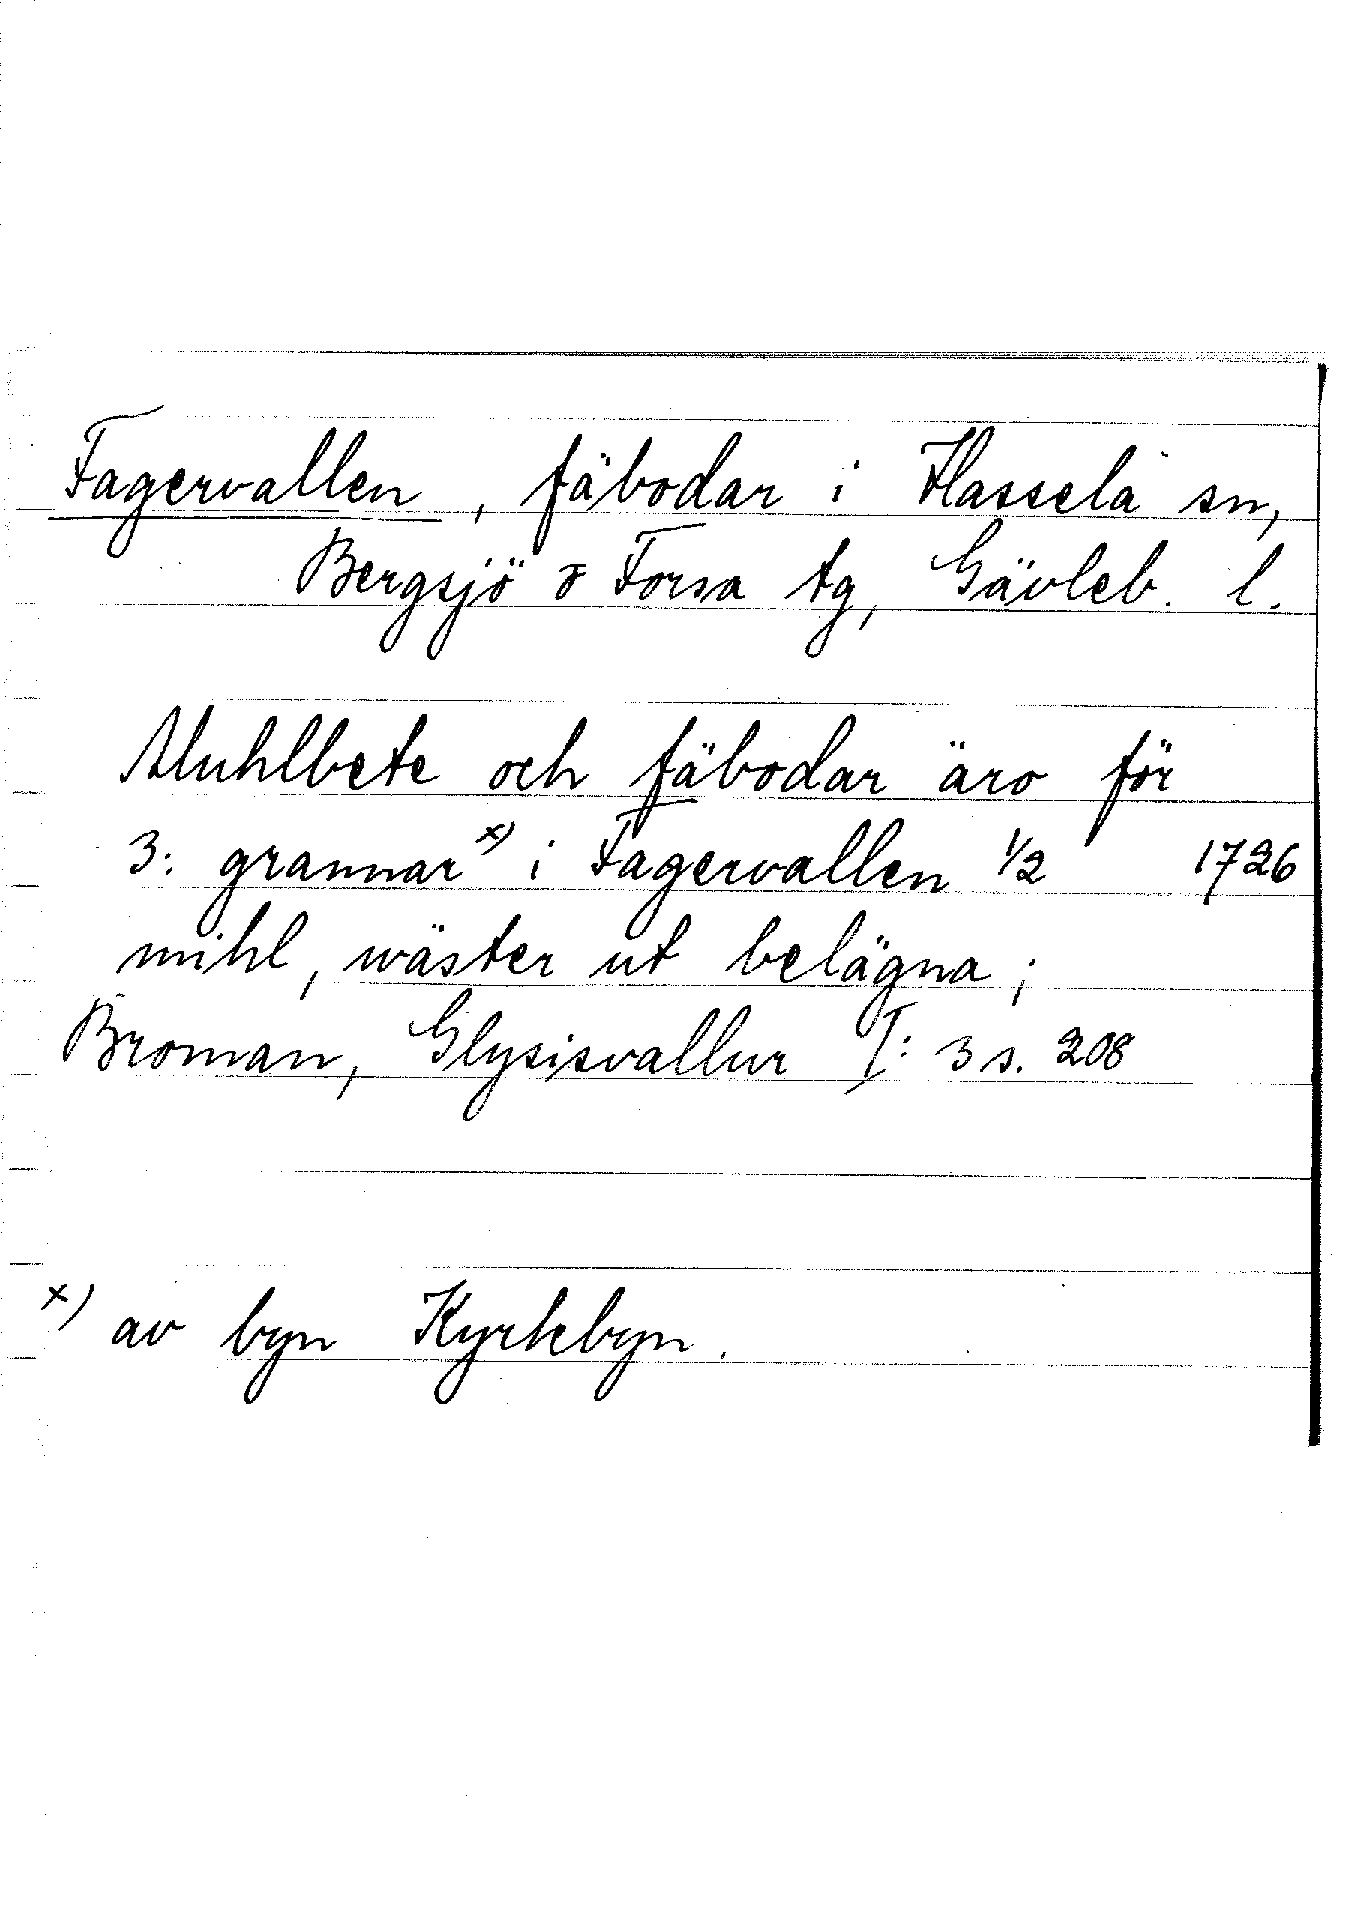 Fagervallen, fäbodar i Hassela sn,
Bergsjö o Forsa tg, Gävleb. l.
Muhlbete och fäbodar äro för
3: grannar x) i Fagervallen 1/2 1726
mihl, wäster ut belägna;
Broman, Glysisvallur I: 3 s. 208
x) av byn Kyrkebyn.